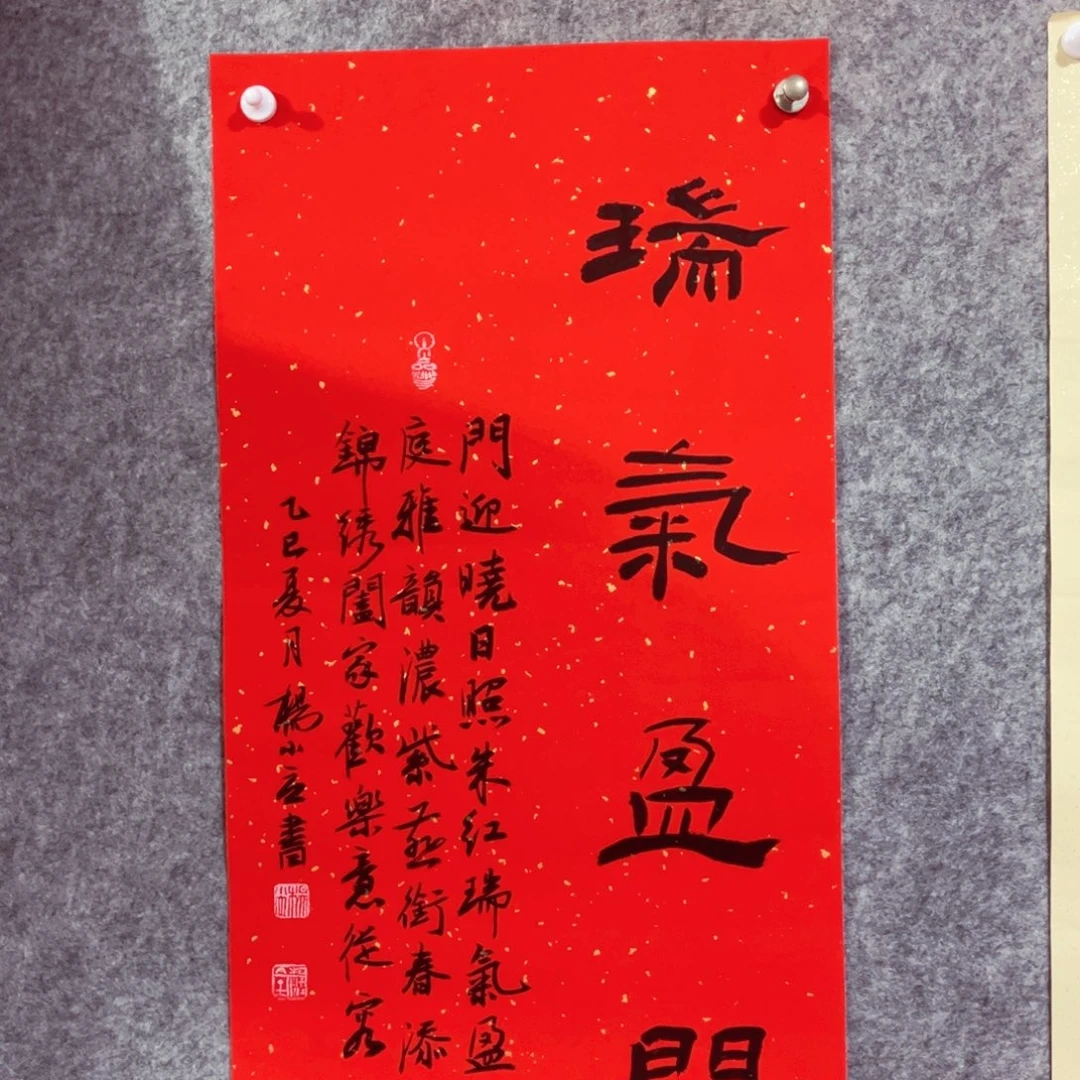 瑞氣盈門
門迎曉日照朱紅瑞氣盈
庭雅韻濃紫燕銜春添
錦绣闔家歡樂意從容
乙巳夏月楊小立書